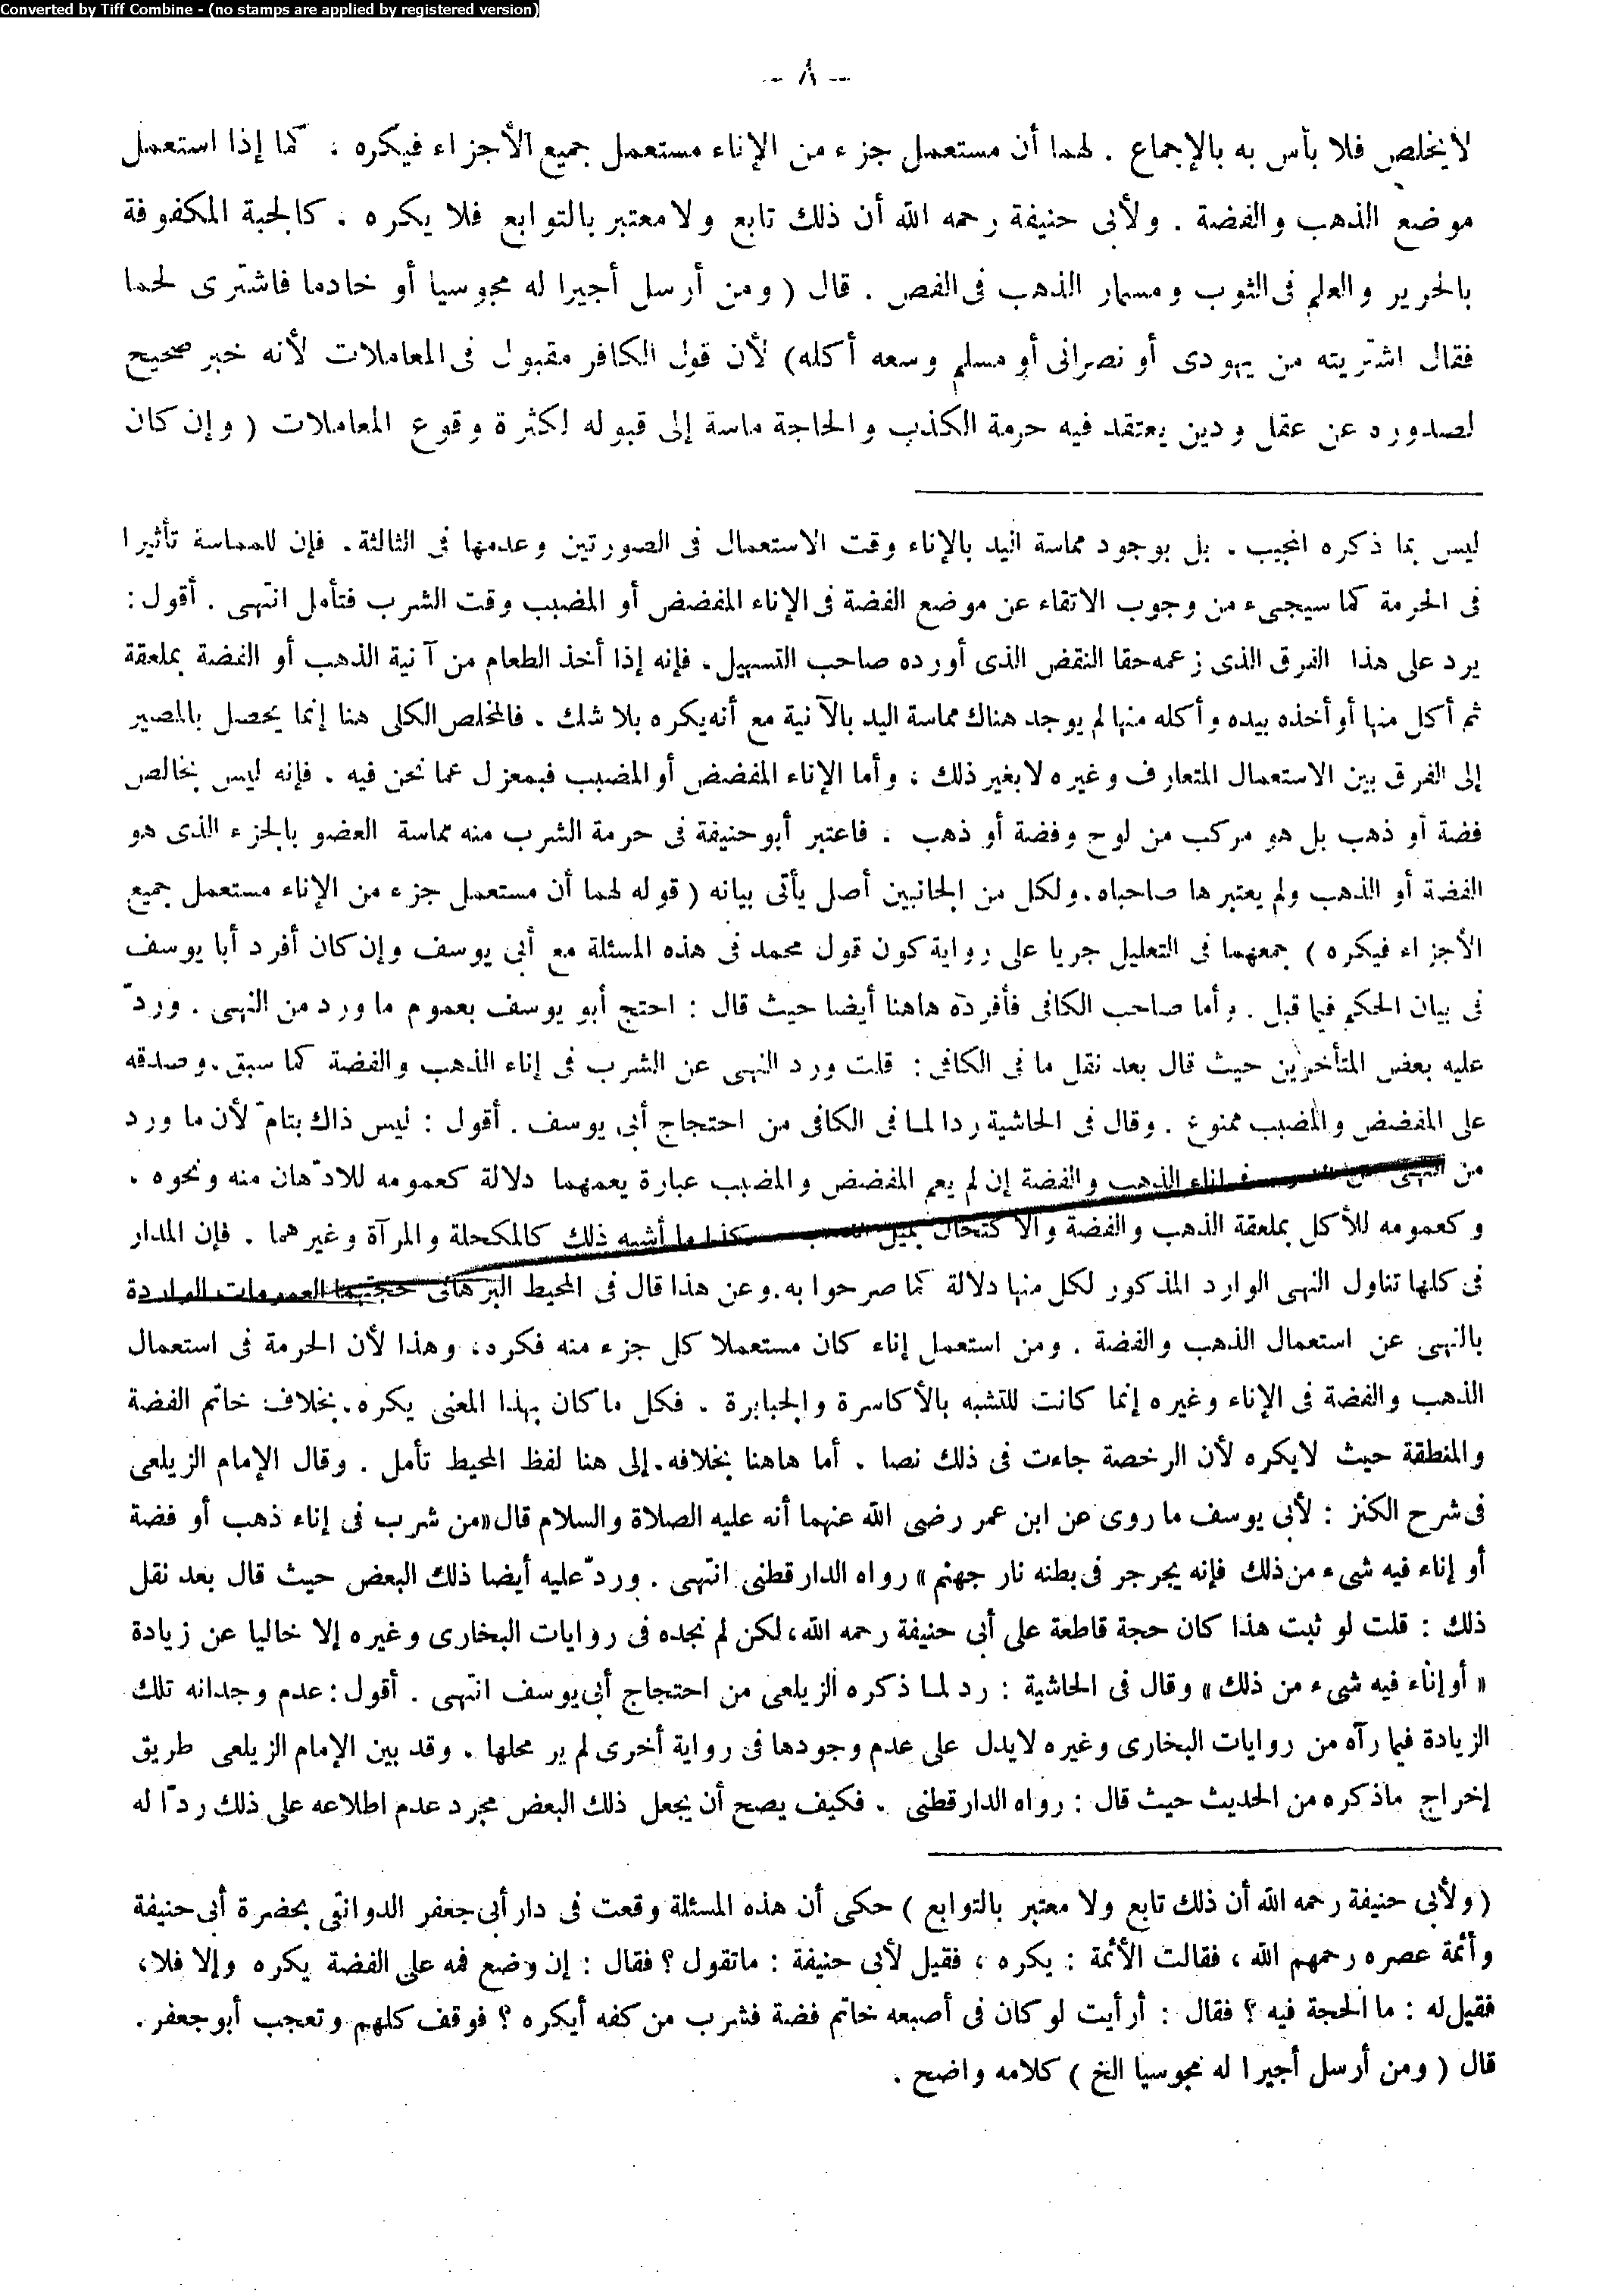 Converted by Tiff Combine - (no stamps are applied by registered version)
-- ٨ --
لا يخلص فلا بأس به بالإجماع . لهما أن مستعمل جزء من الإناء مستعمل جميع الأجزاء فيكره ، كما إذا استعمل
موضع الذهب والفضة . ولأبى حنيفة رحمه الله أن ذلك تابع ولا معتبر بالتوابع فلا يكره ، كالجبة المكفوفة
بالحرير والعلم فى الثوب ومسمار الذهب فى الفص . قال ( ومن أرسل أجيرا له مجوسيا أو خادما فاشترى لحما
فقال اشتريته من يهودى أو نصرانى أو مسلم وسعه أكله) لأن قول الكافر مقبول فى المعاملات لأنه خبر صحيح
لصدوره عن عقل ودين يعتقد فيه حرمة الكذب والحاجة ماسة إلى قبوله لكثرة وقوع المعاملات ( وإن كان
ليس بما ذكره المجيب . بل بوجود مماسة اليد بالإناء وقت الاستعمال فى الصورتين وعدمها فى الثالثة . فإن للمماسة تأثيرا
فى الحرمة كما سيجىء من وجوب الاتقاء عن موضع الفضة فى الإناء المفضض أو المضبب وقت الشرب فتأمل انتهى . أقول :
يرد على هذا الفرق الذى زعمه حقا النقض الذى أورده صاحب التسهيل ، فإنه إذا أخذ الطعام من آنية الذهب أو الفضة بملعقة
ثم أكل منها أو أخذه بيده وأكله منها لم يوجد هناك مماسة اليد بالآنية مع أنه يكره بلا شك . فالمخلص الكلى هنا إنما يحصل بالمصير
إلى الفرق بين الاستعمال المتعارف وغيره لا بغير ذلك ، وأما الإناء المفضض أو المضبب فبمعزل عما نحن فيه . فإنه ليس بخالص
فضة أو ذهب بل هو مركب من لوح وفضة أو ذهب . فاعتبر أبو حنيفة فى حرمة الشرب منه مماسة العضو بالجزء الذى هو
الفضة أو الذهب ولم يعتبرها صاحباه . ولكل من الجانبين أصل يأتى بيانه ( قوله لهما أن مستعمل جزء من الإناء مستعمل جميع
الأجزاء فيكره ) جمعهما فى التعليل جريا على رواية كون قول محمد فى هذه المسئلة مع أبى يوسف وإن كان أفرد أبا يوسف
فى بيان الحكم فيما قبل . وأما صاحب الكافى فأفرده هاهنا أيضا حيث قال : احتج أبو يوسف بعموم ما ورد من النهى . وردّ
عليه بعض المتأخرين حيث قال بعد نقل ما فى الكافى : قلت ورد النهى عن الشرب فى إناء الذهب والفضة كما سبق . وصدقه
على المفضض والمضبب ممنوع . وقال فى الحاشية ردا لما فى الكافى من احتجاج أبى يوسف . أقول : ليس ذاك بتامّ لأن ما ورد
من النهى عن الشرب فى إناء الذهب والفضة إن لم يعم المفضض والمضبب عبارة يعمهما دلالة كعمومه للادّهان منه ونحوه .
وكعمومه للأكل بملعقة الذهب والفضة والاكتحال بميل وكذا ما أشبه ذلك كالمكحلة والمرآة وغيرهما . فإن المدار
فى كلها تناول النهى الوارد المذكور لكل منها دلالة كما صرحوا به . وعن هذا قال فى المحيط البرهانى حجتهما العمومات الواردة
بالنهى عن استعمال الذهب والفضة . ومن استعمل إناء كان مستعملا كل جزء منه فكره ، وهذا لأن الحرمة فى استعمال
الذهب والفضة فى الإناء وغيره إنما كانت للتشبه بالأكاسرة والجبابرة . فكل ما كان بهذا المعنى يكره . بخلاف خاتم الفضة
والمنطقة حيث لا يكره لأن الرخصة جاءت فى ذلك نصا . أما هاهنا بخلافه . إلى هنا لفظ المحيط تأمل . وقال الإمام الزيلعى
فى شرح الكنز : لأبى يوسف ما روى عن ابن عمر رضى الله عنهما أنه عليه الصلاة والسلام قال «من شرب فى إناء ذهب أو فضة
أو إناء فيه شىء من ذلك فإنه يجرجر فى بطنه نار جهنم » رواه الدارقطنى انتهى . وردّ عليه أيضا ذلك البعض حيث قال بعد نقل
ذلك : قلت لو ثبت هذا كان حجة قاطعة على أبى حنيفة رحمه الله ، لكن لم نجده فى روايات البخارى وغيره إلا خاليا عن زيادة
« أو إناء فيه شىء من ذلك » وقال فى الحاشية : رد لما ذكره الزيلعى من احتجاج أبى يوسف انتهى . أقول : عدم وجدانه تلك
الزيادة فيما رآه من روايات البخارى وغيره لا يدل على عدم وجودها فى رواية أخرى لم ير محلها . وقد بين الإمام الزيلعى طريق
إخراج ما ذكره من الحديث حيث قال : رواه الدارقطنى . فكيف يصح أن يجعل ذلك البعض مجرد عدم اطلاعه على ذلك ردّا له
( ولأبى حنيفة رحمه الله أن ذلك تابع ولا معتبر بالتوابع ) حكى أن هذه المسئلة وقعت فى دار أبى جعفر الدوانقى بحضرة أبى حنيفة
وأئمة عصره رحمهم الله ، فقالت الأئمة : يكره ، فقيل لأبى حنيفة : ما تقول ؟ فقال : إن وضع فمه على الفضة يكره وإلا فلا ،
فقيل له : ما الحجة فيه ؟ فقال : أرأيت لو كان فى أصبعه خاتم فضة فشرب من كفه أيكره ؟ فوقف كلهم وتعجب أبو جعفر .
قال ( ومن أرسل أجيرا له مجوسيا الخ ) كلامه واضح .